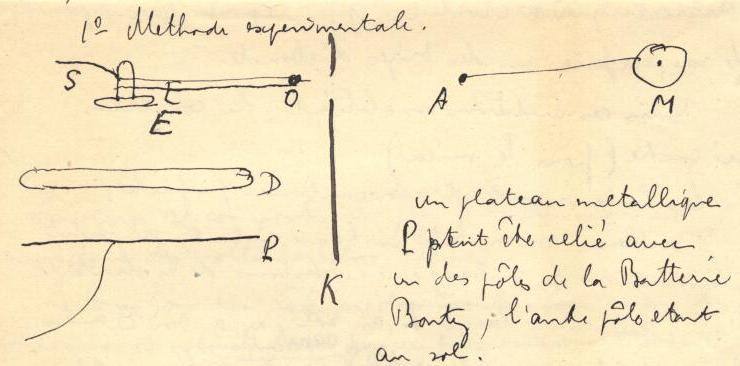 1º Methode experimentale.
S
E
E
O
A
M
D
P
K
un plateau metallique
P peut être relié avec
un des pôles de la Batterie
, l'autre pôle etant
au sol.